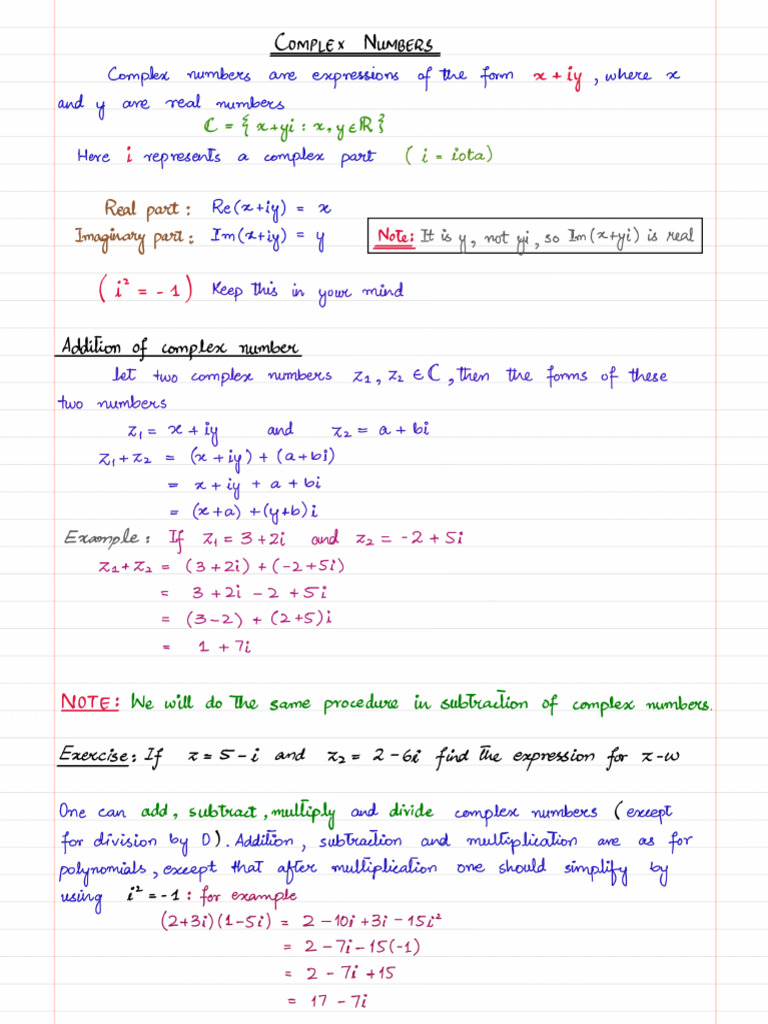 COMPLEX NUMBERS
Complex numbers are expressions of the form x + iy, where x
and y are real numbers
ℂ = { x+yi : x, y ∈ ℝ }
Here i represents a complex part ( i = iota)
Real part : Re(x+iy) = x
Imaginary part : Im(x+iy) = y
Note: It is y, not yi, so Im(x+yi) is real
( i² = -1 ) Keep this in your mind
Addition of complex number
let two complex numbers z₁, z₂ ∈ ℂ, then the forms of these
two numbers
z₁ = x + iy and z₂ = a + bi
z₁+z₂ = (x + iy) + (a+bi)
= x + iy + a + bi
= (x+a) + (y+b)i
Example : If z₁ = 3 + 2i and z₂ = -2 + 5i
z₁+z₂ = (3+2i) + (-2+5i)
= 3 + 2i - 2 + 5i
= (3-2) + (2+5)i
= 1 + 7i
NOTE: We will do the same procedure in subtraction of complex numbers.
Exercise: If z = 5 - i and z₂ = 2 - 6i find the expression for z-w
One can add, subtract, multiply and divide complex numbers (except
for division by 0). Addition, subtraction and multiplication are as for
polynomials, except that after multiplication one should simplify by
using i² = -1 : for example
(2+3i)(1-5i) = 2 - 10i + 3i - 15i²
= 2 - 7i - 15(-1)
= 2 - 7i + 15
= 17 - 7i